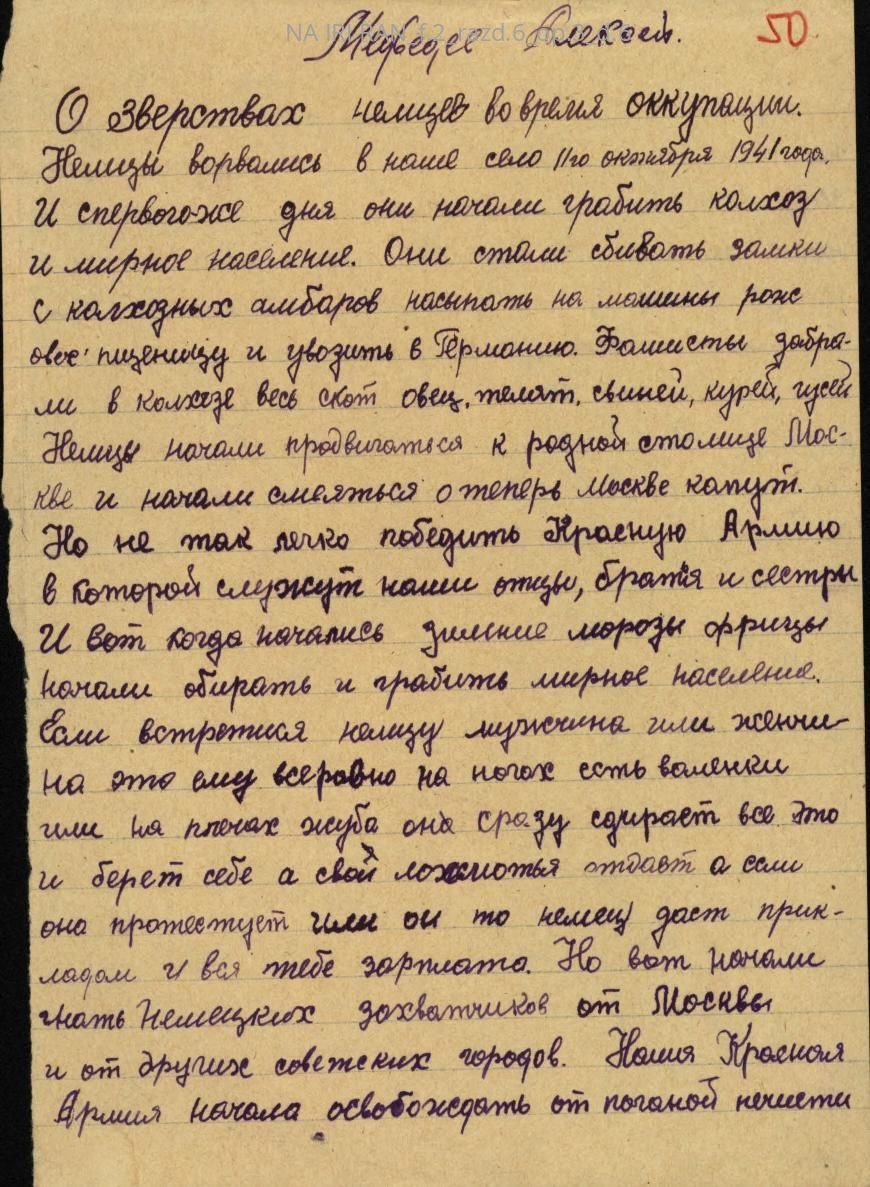 NA IRI RAN f.2, razd.6
Медведев Алексей.
50
О зверствах немцев во время оккупации.
Немцы ворвались в наше село 11го октября 1941 года.
И спервогоже дня они начали грабить колхоз
и мирное население. Они стали сбивать замки
с колхозных амбаров насыпать на машины рожь
овес пшеницу и увозить в Германию. Фашисты забра-
ли в колхозе весь скот овец, телят, свиней, курей, гусей
Немцы начали продвигаться к родной столице Мос-
кве и начали смеяться о теперь Москве капут.
Но не так легко победить Красную Армию
в которой служут наши отцы, братья и сестры
И вот когда начались зимние морозы фрицы
начали обирать и грабить мирное население.
Если встретися немцу мужчина или женчи-
на это ему всеровно на ногах есть валенки
или на плечах жуба она сразу сдирает все это
и берет себе а свой лохмотья отдает а если
она протестует или он то немец даст прик-
ладом и вся тебе зарплата. Но вот начали
гнать Немецких захватчиков от Москвы
и от других советских городов. Наша Красная
Армия начала освобождать от поганой нечисти